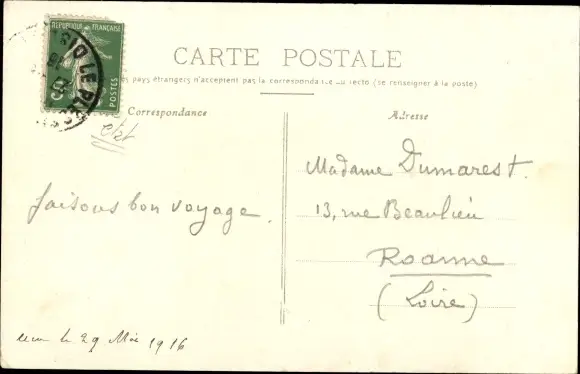 REPUBLIQUE FRANÇAISE
POSTES
CARTE POSTALE
pays étrangers n'acceptent pas la correspondance au recto (se renseigner à la poste)
Correspondance
Adresse
faisons bon voyage.
Madame Dumarest.
13, rue Beaulieu
Roanne
(Loire)
le 29 Mai 1916